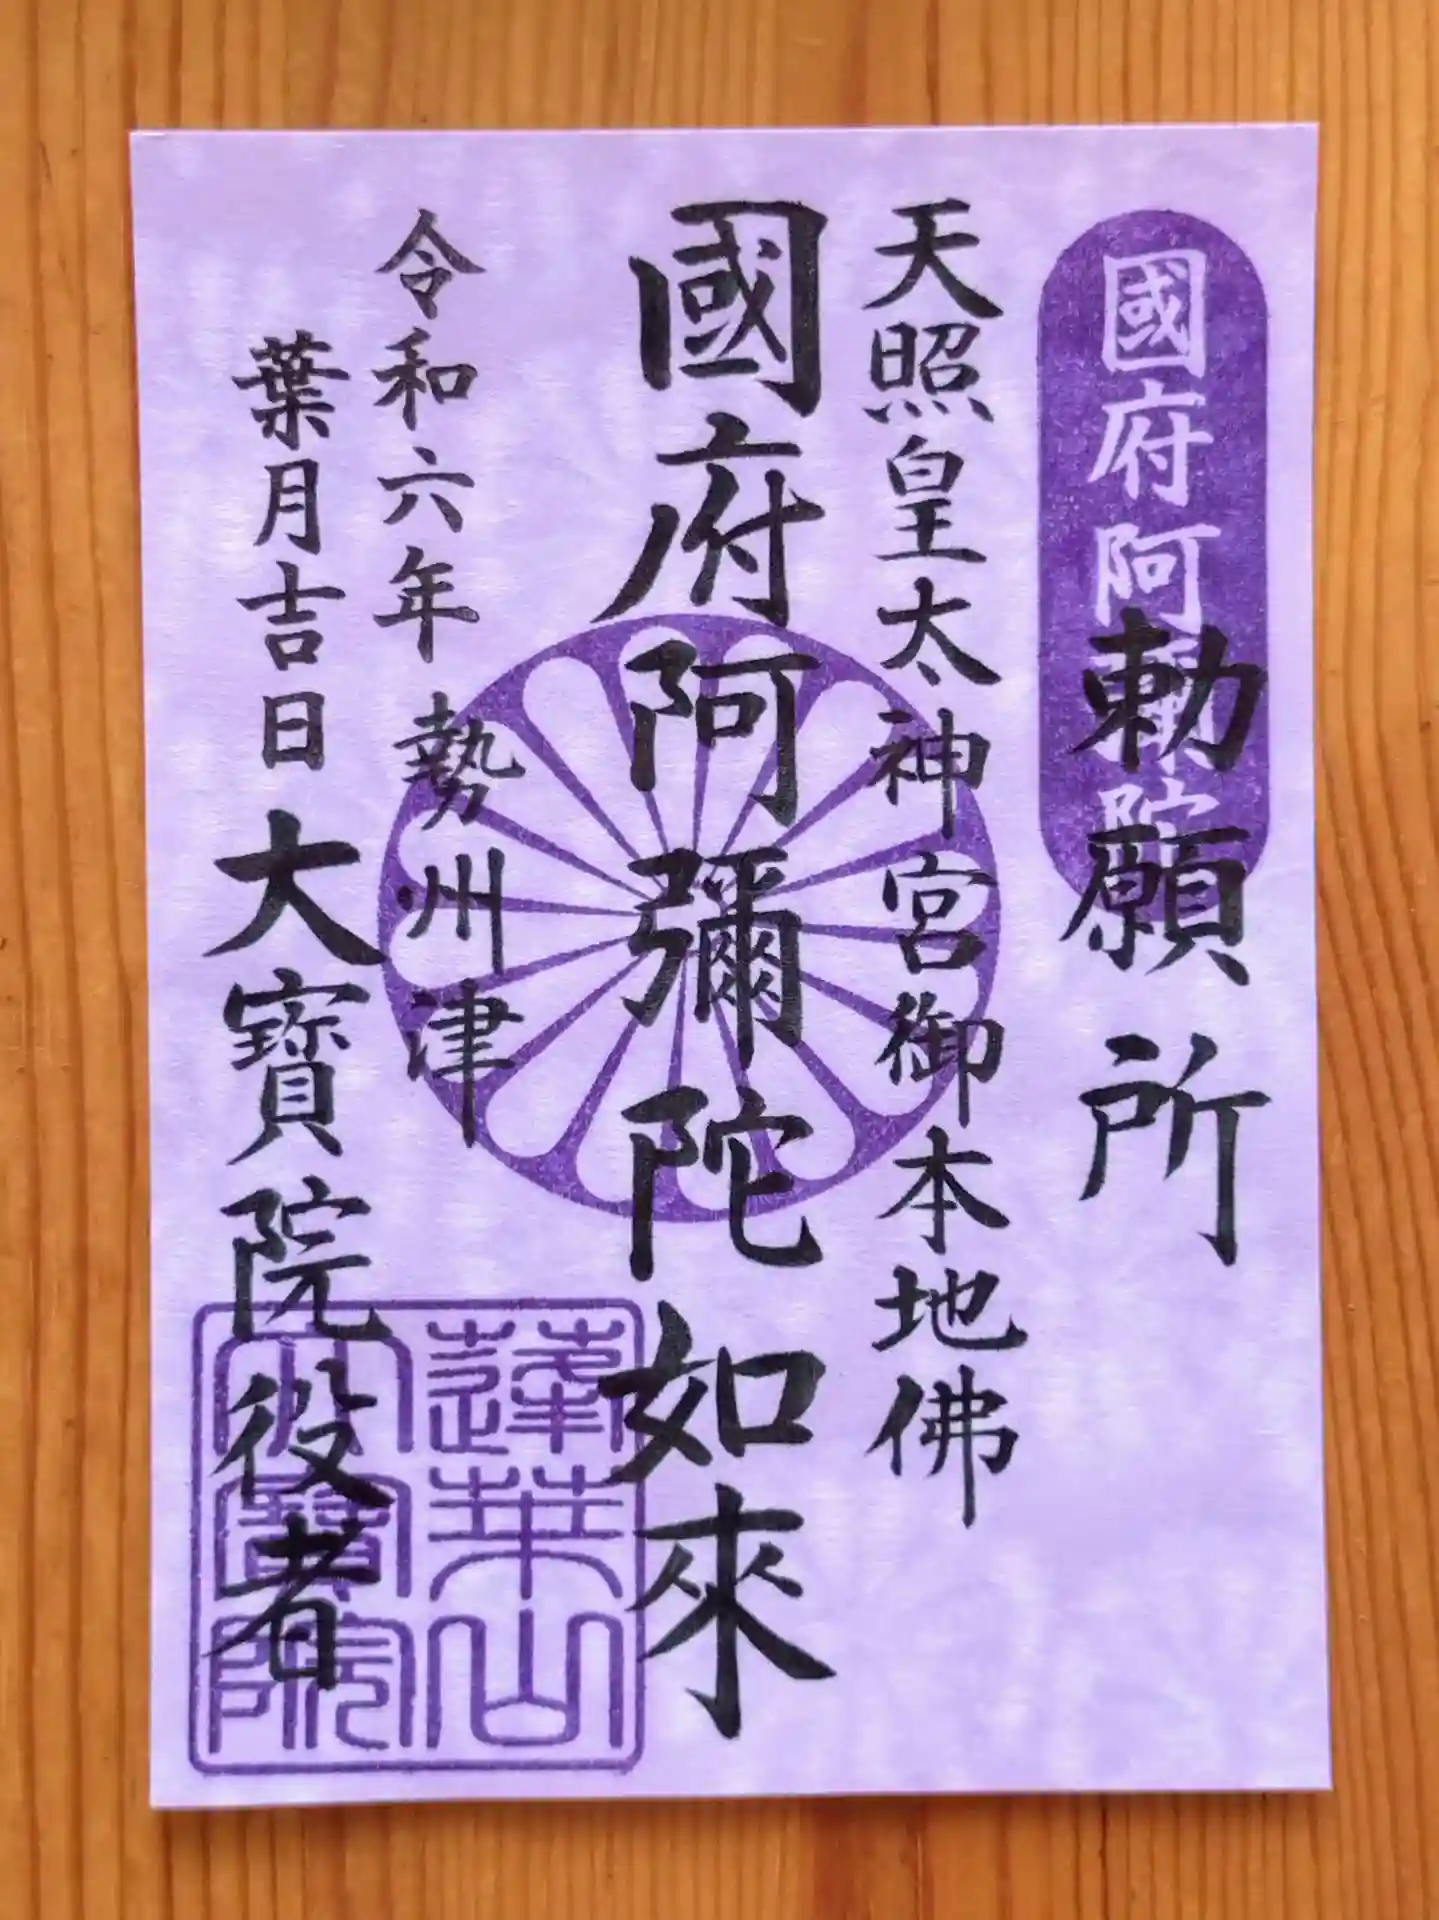 國府阿彌陀
勅願所
天照皇太神宮御本地佛
國府阿彌陀如來
令和六年
勢州津
葉月吉日
大寶院役者
蓮華山
大寶院